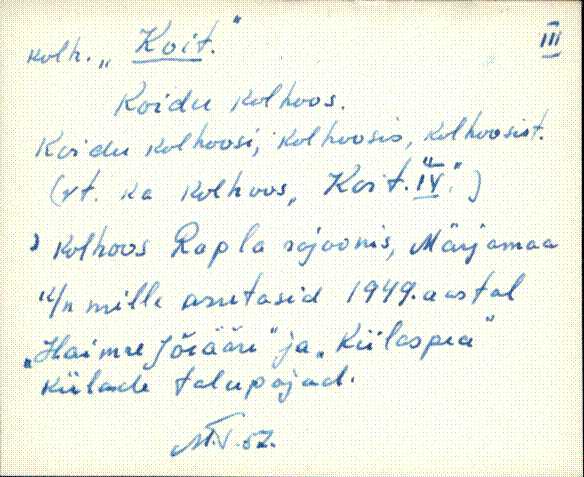 kolh. „Koit." III
Koidu kolhoos.
Koidu kolhoosi, kolhoosis, kolhoosist.
(vt. ka kolhoos „Koit." IV.")
kolhoos Rapla rajoonis, Märjamaa
k/n mille asutasid 1949. aastal
„Haimre Jõeääre" ja „Külaspea"
külade talupojad.
52.